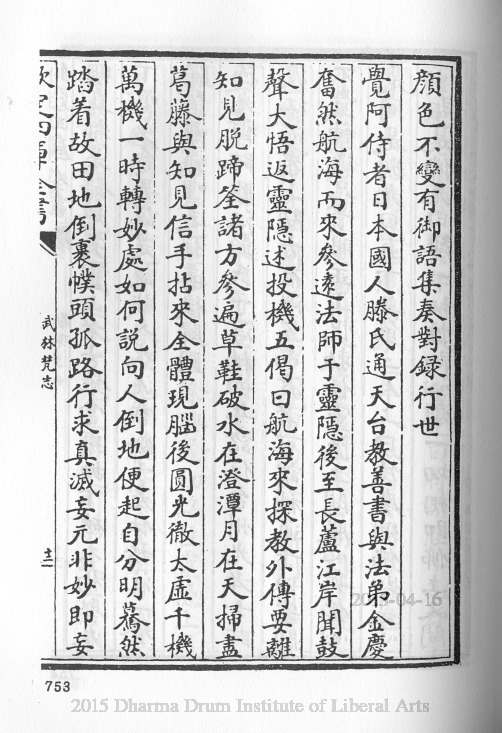 顔色不變有御語集奏對録行世
覺阿侍者日本國人滕氏通天台教善書與法弟金慶
奮然航海而來參遠法師于靈隠後至長蘆江岸聞鼓
聲大悟返靈隠述投機五偈曰航海來探教外傳要離
知見脱蹄筌諸方參遍草鞋破水在澄潭月在天掃盡
葛藤與知見信手拈來全體現腦後圓光徹太虚千機
萬機一時轉妙處如何説向人倒地便起自分明驀然
踏着故田地倒裏幞頭孤路行求真滅妄元非妙即妄
欽定四庫全書
武林梵志
十二
753
2015-04-16
2015 Dharma Drum Institute of Liberal Arts